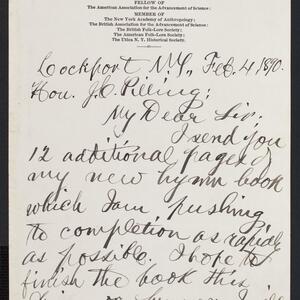 FELLOW OF
The American Association for the Advancement of Science;
MEMBER OF
The New York Academy of Anthropology;
The British Association for the Advancement of Science;
The British Folk-Lore Society;
The American Folk-Lore Society;
The Utica N. Y. Historical Society.
Lockport N.Y., Feb. 4 1890.
Hon. J. C. Pilling;
My Dear Sir;
I send you
12 additional pages of
my new hymn book
which I am pushing
to completion as rapidly
as possible. I hope to
finish the book this